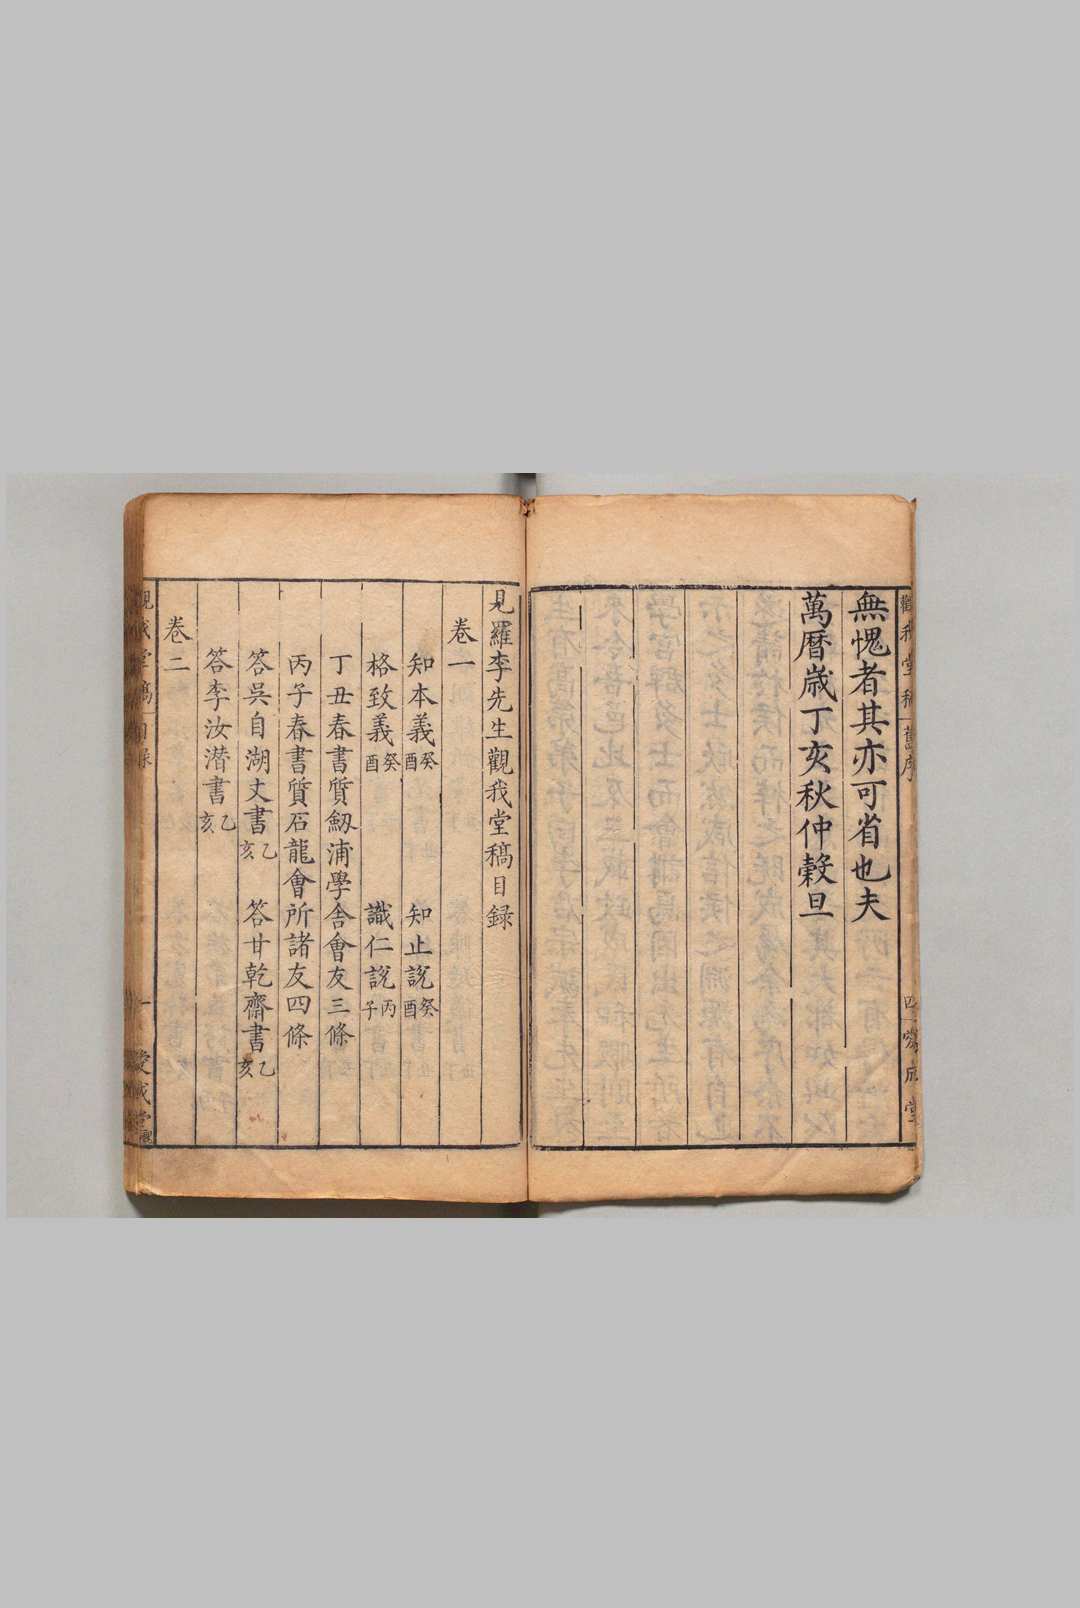 無愧者其亦可省也夫
萬曆歳丁亥秋仲穀旦
見羅李先生觀我堂稿目録
卷一
知本義癸酉 知止説癸酉
格致義癸酉 識仁説丙子
丁丑春書質劒浦學舎會友三條
丙子春書質石龍會所諸友四條
答吳自湖丈書乙亥 答甘乾齋書乙亥
答李汝潜書乙亥
卷二